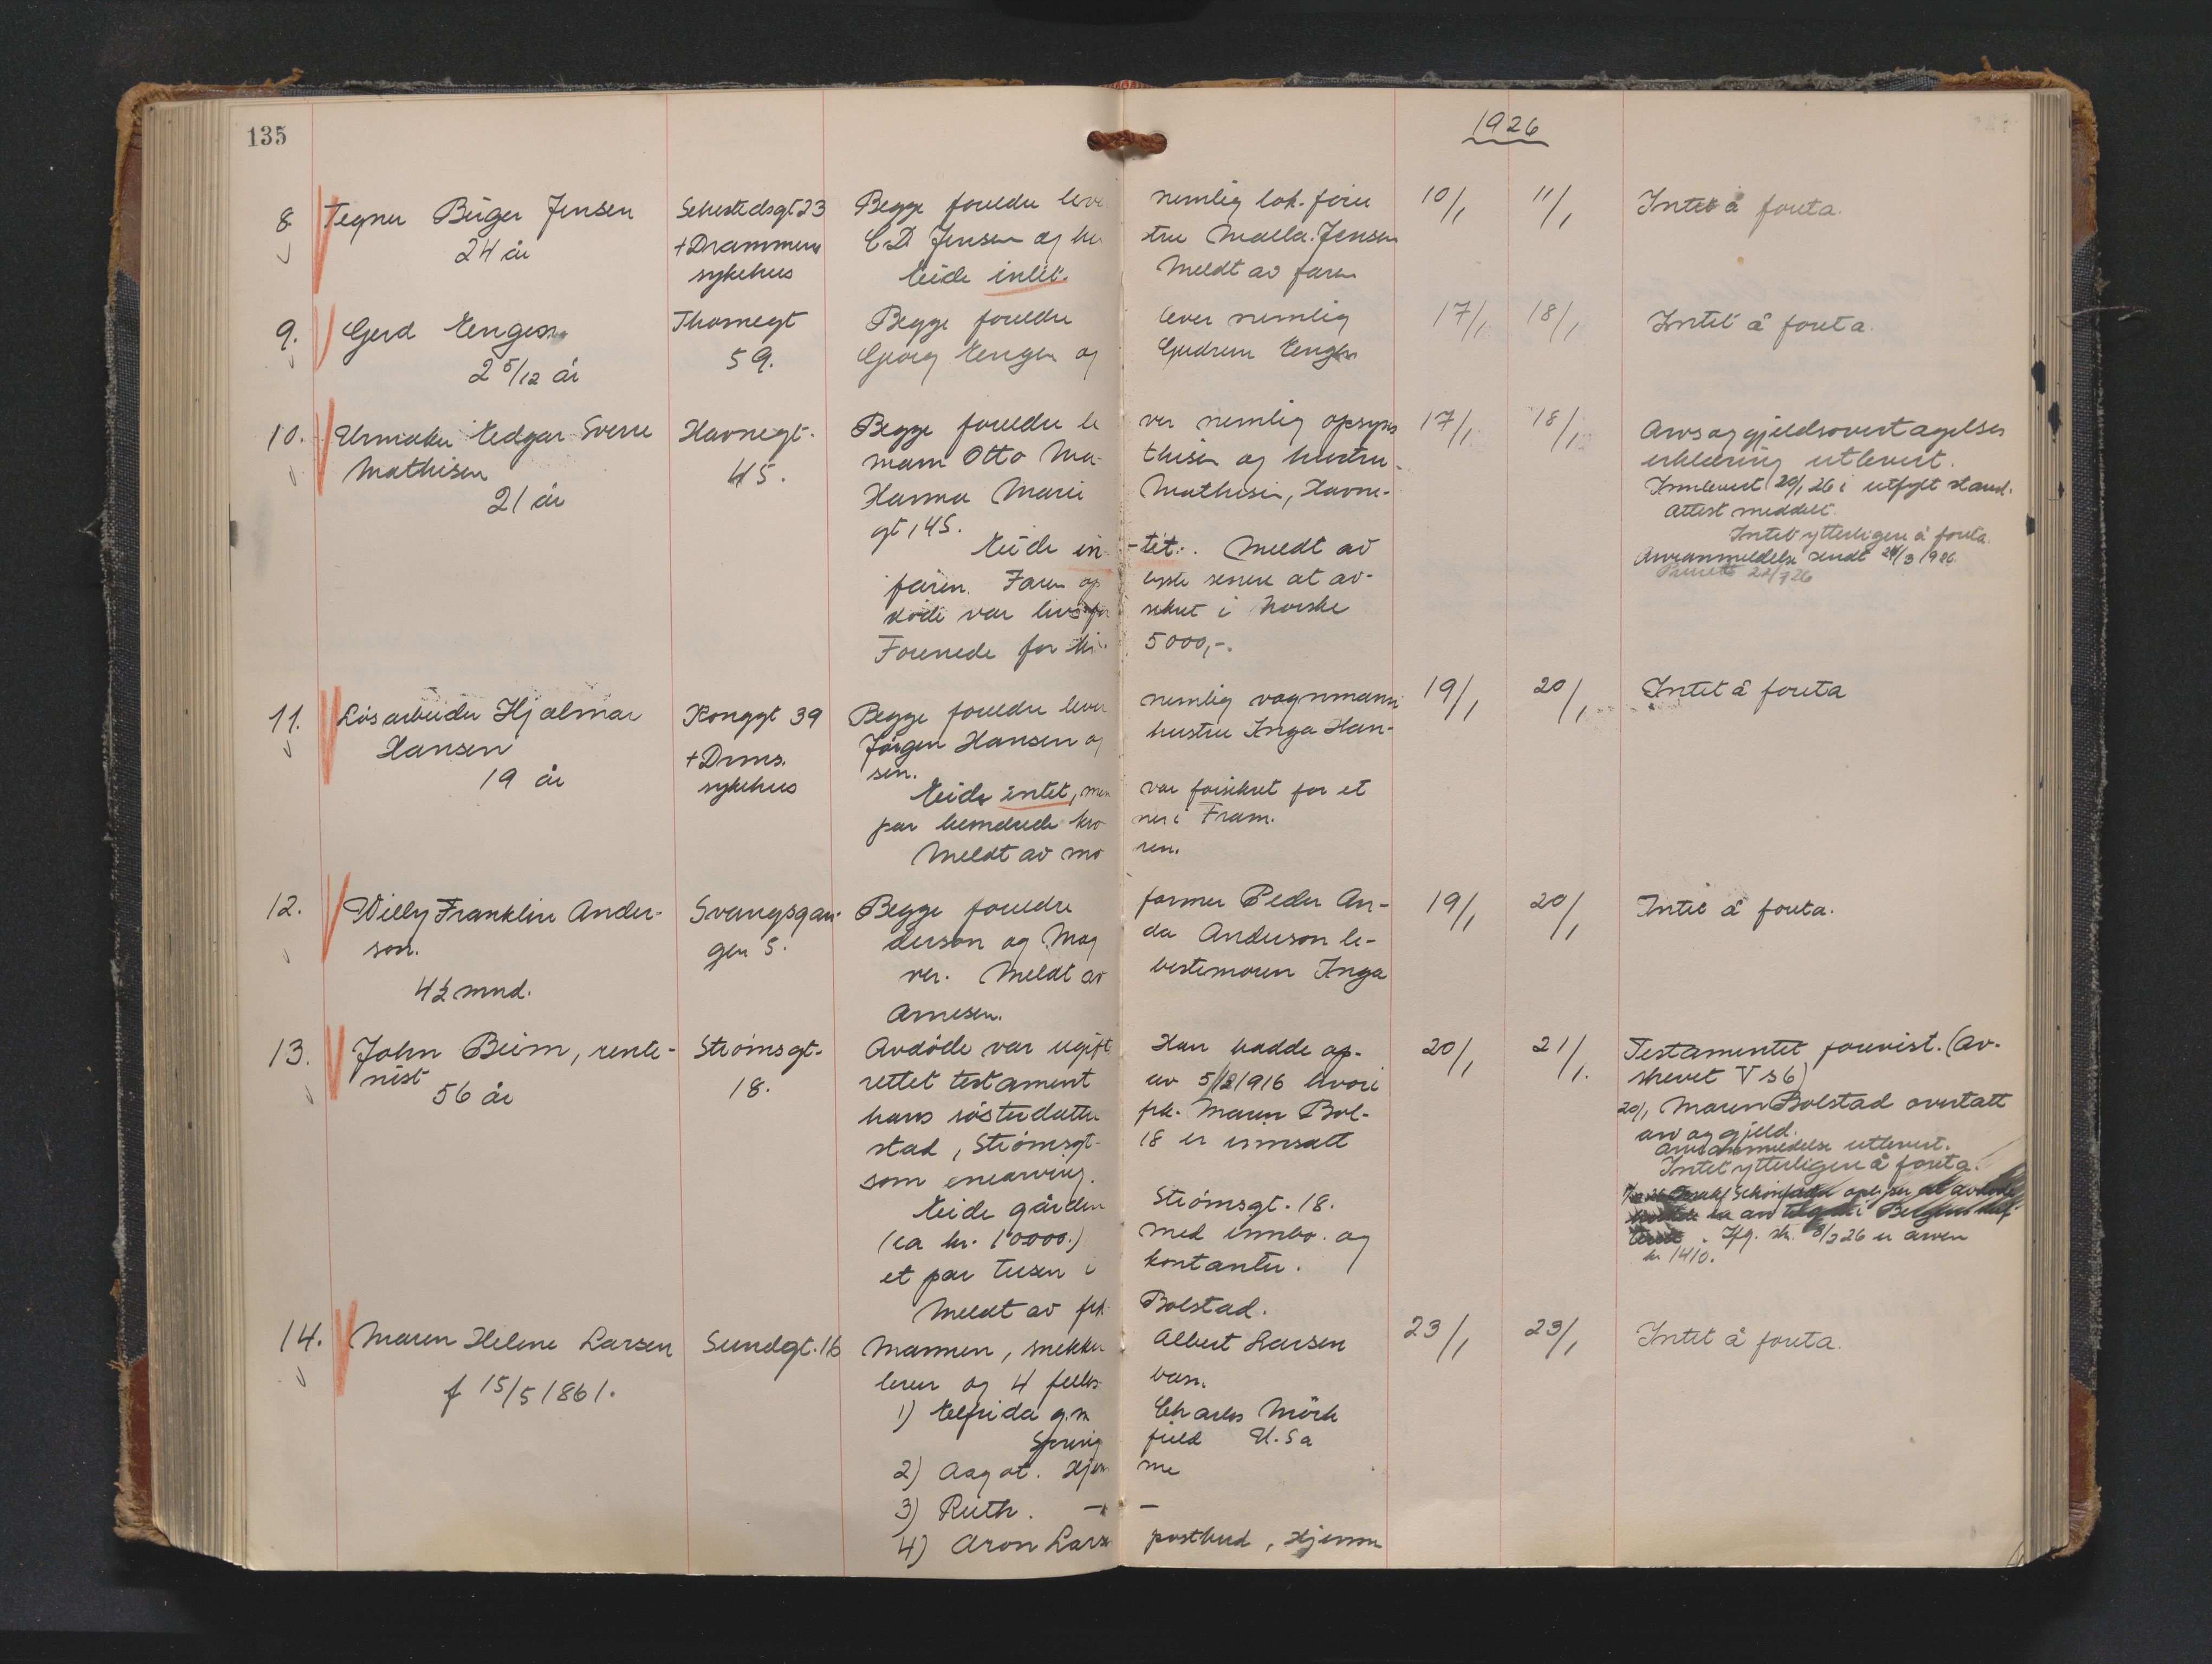 135
1926
8 Tegner Birger Jensen Sehestedsgt 23 Begge foreldre lever nemlig lok. fører 10/1 11/1 Intet å foreta.
24 år +Drammens C.D. Jensen og hustru Malla Jensen
sykehus Eide intet. Meldt av faren
9. Gerd Engen Thornegt Begge foreldre lever nemlig 17/1 18/1 Intet å foreta.
2 5/12 år 59. Georg Engen og Gudrun Engen
10. Urmaker Edgar Sverre Havnegt. Begge foreldre lever nemlig opsyns 17/1 18/1 Arvs og gjeldsovertagelses
Mathisen 45. mann Otto Mathisen og hustru erklæring utlevert.
21 år Hanna Marie Mathisen, Havne- Innlevert 20/1 26 i utfylt stand.
gt, 45. Attest meddelt.
Eide in-tet. Meldt av Intet ytterligere å foreta.
faren. Faren oplyste senere at av- Arveanmeldelse sendt 24/3 1926.
døde var livsforsikret i Norske
Forenede for kr. 5000,-.
11. Løsarbeider Hjalmar Konggt 39 Begge foreldre lever nemlig vognmann 19/1 20/1 Intet å foreta
Hansen +Drms. Jørgen Hansen og hustru Inga Han-
19 år sykehus sen.
Eide intet, men var forsikret for et
par hundrede kroner i Fram.
Meldt av moren.
12. Willy Franklin Ander- Svangsgan- Begge foreldre former Peder An- 19/1 20/1 Intet å foreta.
son. gen 5. derson og Magda Anderson le-
4½ mnd. ver. Meldt av bestemoren Inga
Arnesen.
13. John Beim, rente- Strømsgt. Avdøde var ugift Han hadde op- 20/1 21/1 Testamentet forevist. (Av-
nist 18. rettet testament av 5/12 1916 hvori skrevet V s 6)
56 år hans søsterdatter frk. Maren Bol- 20/1 Maren Bolstad overtatt
stad, Strømsgt. 18 er innsatt arv og gjeld.
som enearving. Arveanmeldelse utlevert.
Eide gården Strømsgt. 18. Intet ytterligere å foreta.
(ca kr. 10000.) med innbo og
et par tusen i kontanter. 8/3 26 er arven
Meldt av frk. Bolstad. kr 1410.
14. Maren Helene Larsen Sundgt. 16 Mannen, snekker Albert Larsen 23/1 23/1 Intet å foreta.
f 15/5 1861. lever og 4 felles barn.
1) Elfrida g.m. Charles Mörk
Springfield U.S a
2) Aagot. Hjemme
3) Ruth. -"-
4) Aron Larsen postbud, Hjemme